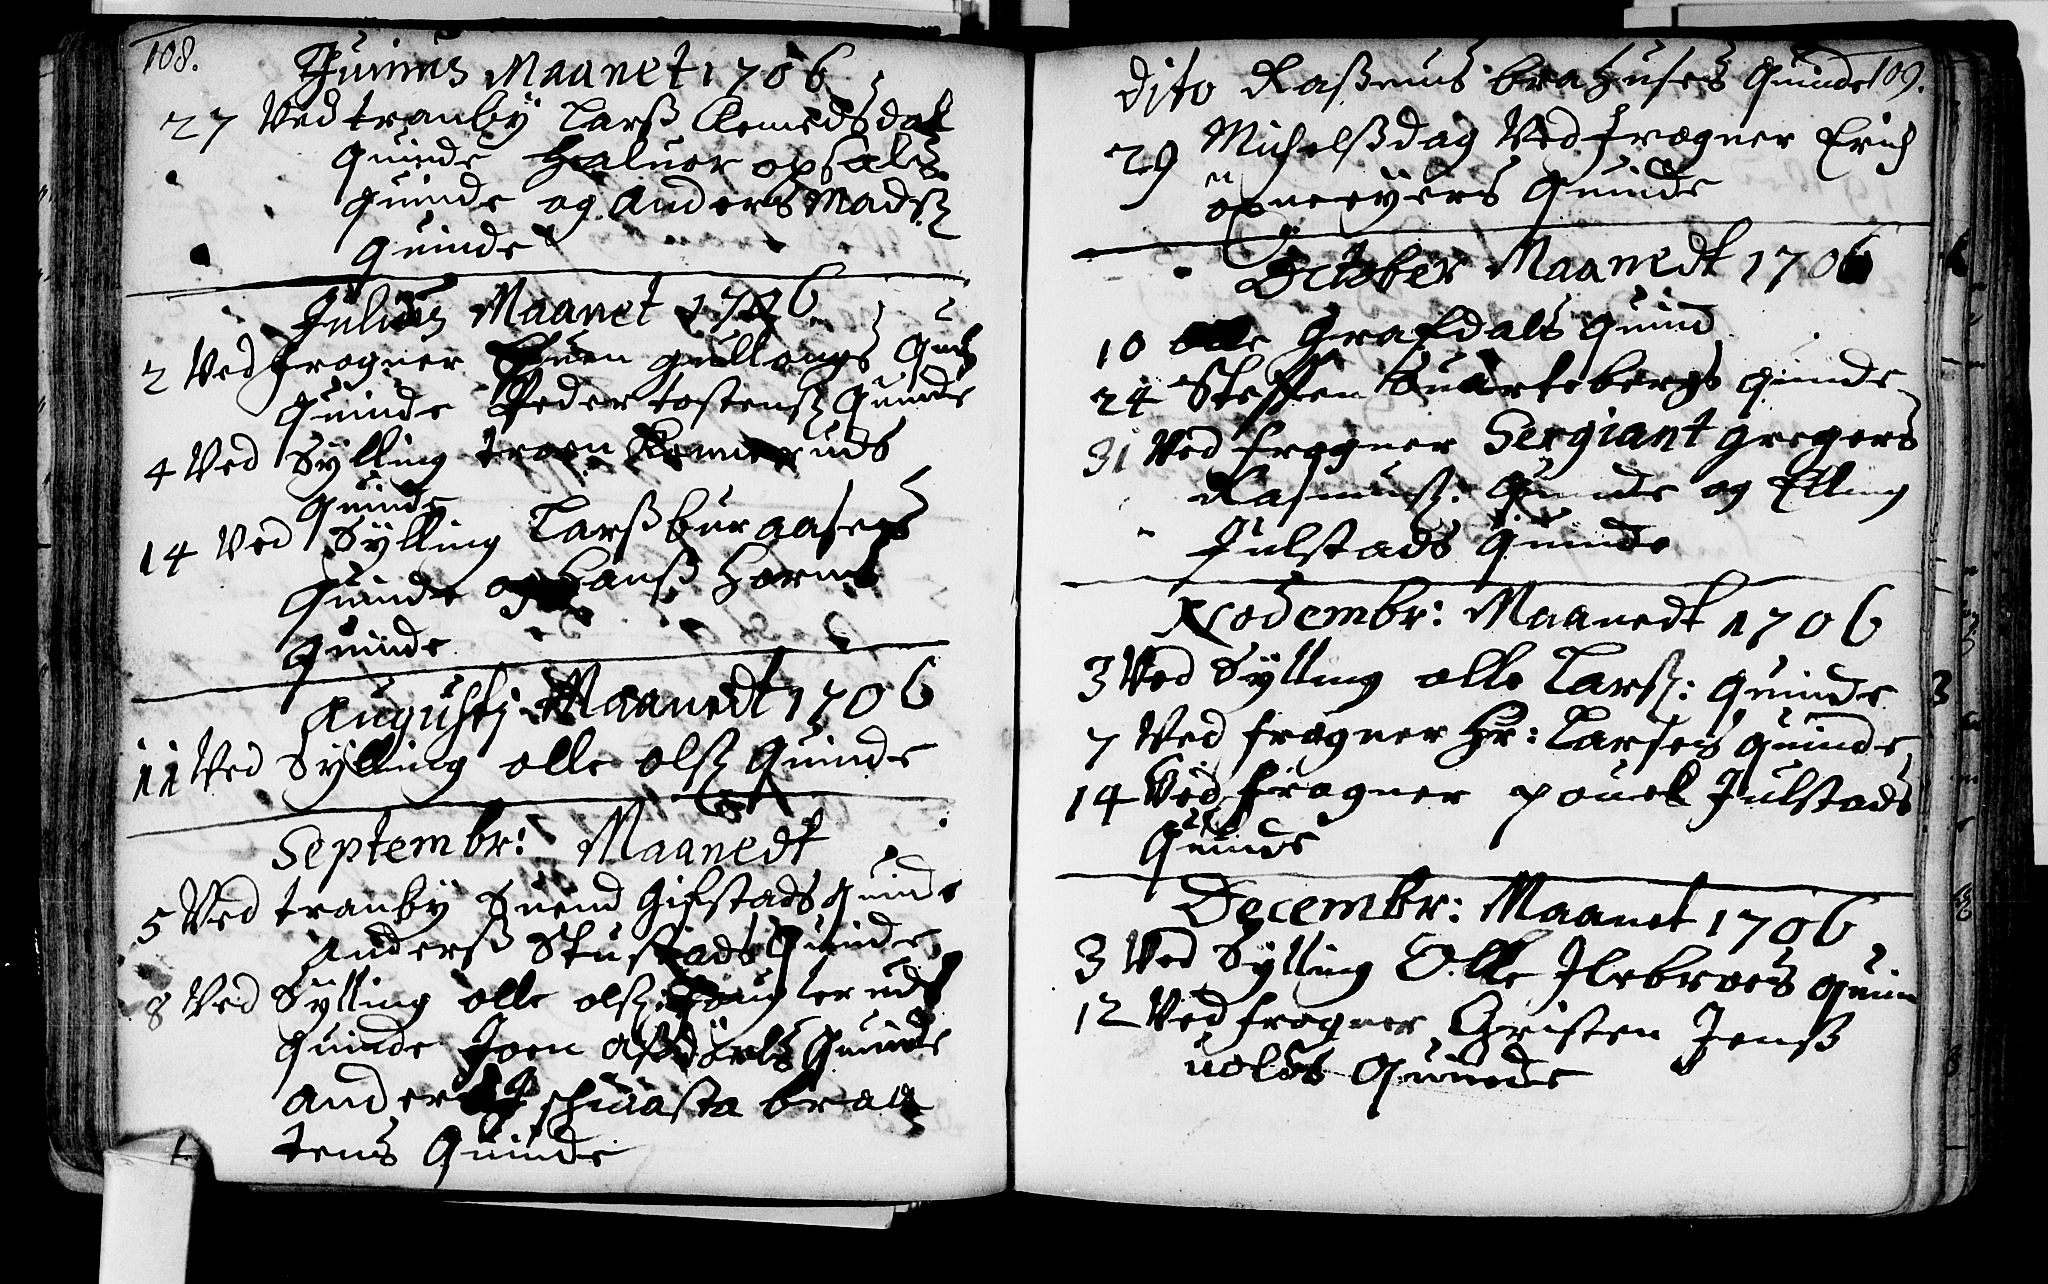 108.
Junius Maanet 1706
27 Ved tranby Larß Kemedsdals
quinde Haluor opsals
quinde og Anders Madsz
quinde
Julius Maanet 1706
2 Ved frogner Euen gullougs
quinde Peder tostensz quinde
4 Ved Sylling troen
quinde
14 Ved Sylling Larß buraasens
quinde og Hanß Hörns
quinde
Augustj Maanedt 1706
11 Ved Sylling olle olsz quinde
Septembr: Maanedt
5 Ved tranby Suend Gifstads quinde
Anderß Stustads quinde
8 Ved Sylling olle olsz:
quinde Joen quinde
Anders braa
tens quinde
109.
Dito Raßmus brahuses quinde
29 Michelßdag Ved frogner Erich
opneyers quinde
October Maanedt 1706
10 olle Grafdals quind
24 Steffen Suartebergs quinde
31 Ved frogner Sergiant gregers
Rasmusz: quinde og Elling
Julstads quinde
Novembr: Maanedt 1706
3 Ved Sylling olle Larsz: quinde
7 Ved frogner Hr: Larses quinde
14 Ved frogner pouel Julstads
quinde
Decembr: Maanet 1706
3 Ved Sylling Olle Ilebroes quin
12 Ved frogner Christen Jenß
uolds quinde